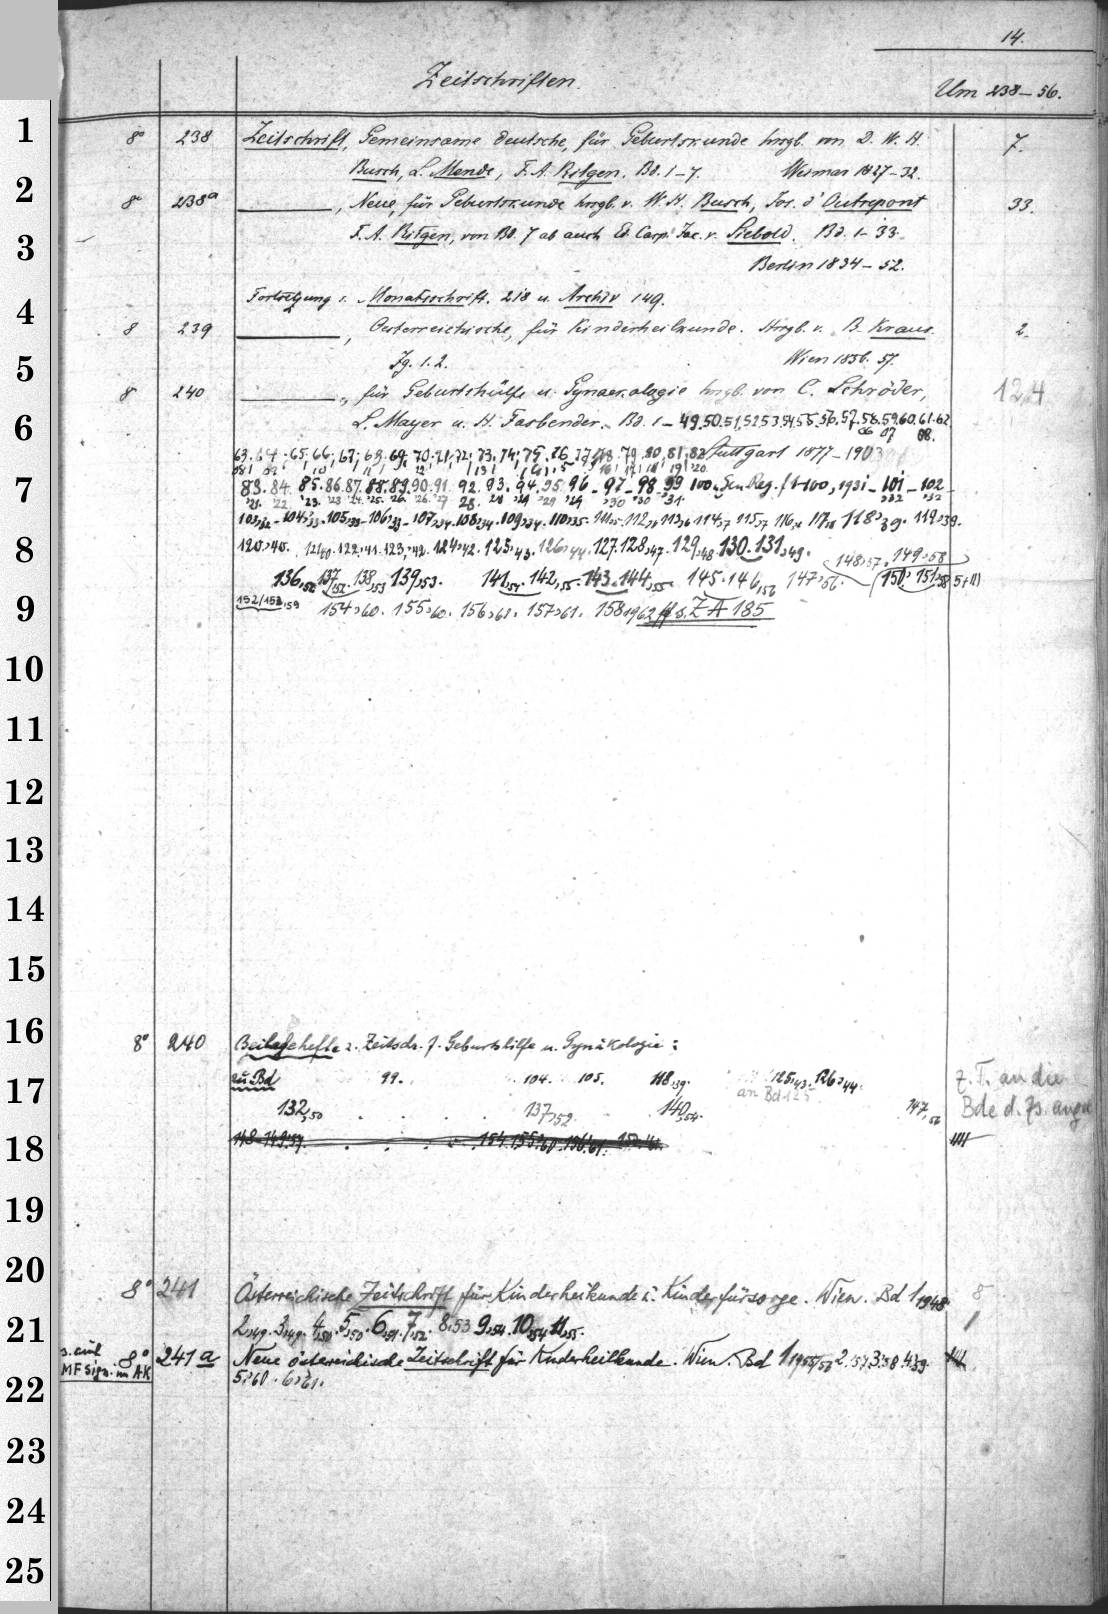 14.
Zeitschriften.
Um 238–56.
1
8° 238 Zeitschrift, Gemeinsame deutsche, für Geburtskunde hrsgb. von D. W. H. 7.
Busch, L. Mende, F. A. Ritgen. Bd. 1–7. Weimar 1827–32.
2
8° 238a ———, Neue, für Geburtskunde hrsgb. v. W. H. Busch, Jos. d'Outrepont 33.
3
F. A. Ritgen, von Bd. 7 ab auch Ed. Casp. Jac. v. Siebold. Bd. 1–33.
Berlin 1834–52.
4
Fortsetzung s. Monatsschrift. 218 u. Archiv 149.
8 239 ———, Oesterreichische, für Kinderheilkunde. Hrsgb. v. B. Kraus. 2.
5
Jg. 1. 2. Wien 1856. 57.
8 240 ———, für Geburtshülfe u. Gynaekologie hrsgb. von C. Schröder, 124
6
L. Mayer u. H. Fasbender. Bd. 1–49.50.51.52.53.54.55.56.57.58.59.60.61.62
06 07 08.
63. 64. 65. 66. 67. 68. 69. 70. 71. 72. 73. 74. 75. 76. 77. 78. 79. 80. 81. 82 Stuttgart 1877–1903
7
83. 84. 85. 86. 87. 88. 89. 90. 91. 92. 93. 94. 95. 96–97–98. 99 100 u. Gen. Reg. f. 1–100, 1931–101–102–
'21. '22. '23. '23 '24. '25. '26. '26. '27 '28. '28 '29 '29 '29 '30 '30 '31. '32 '32
8
120,40. 121,40. 122,41. 123,42. 124,42. 125,43. 126,44. 127. 128,47. 129,48. 130. 131,49. 148,57. 149,58
136,52 137,52 138,53 139,53. 141,54. 142,55. 143. 144,55 145. 146,56 147,56. (150, 151,58
9
152/153,59 154,60. 155,60. 156,61. 157,61. 158 1962 ff s. Z A 185
10
11
12
13
14
15
16
8° 240 Beilagehefte z. Zeitschr. f. Geburtshilfe u. Gynäkologie:
17
zu Bd 99. 104. 105. 118,39. 125,43. 126,44. z. T. an die
an Bd 125
132,50 137,52 140,54. 147,56 Bde d. Zs. ange
18
148–149,57. 154. 155,60. 156,61.
19
20
8° 241 Österreichische Zeitschrift für Kinderheilkunde u. Kinderfürsorge. Wien. Bd 1 1948 8
21
2,49. 3,49. 4,50. 5,50. 6,51. 7,52. 8,53 9,54. 10,54 11,55.
s. auch
8° 241a Neue österreichische Zeitschrift für Kinderheilkunde. Wien. Bd 1 1955/56 2,57. 3,58. 4,59.
MF Sign. im AK
22
5,60. 6,61.
23
24
25